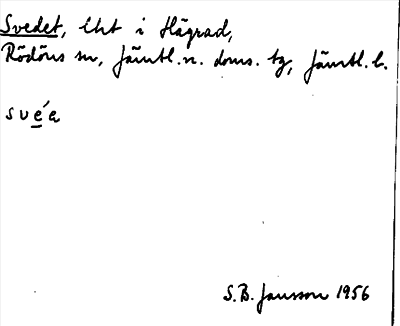 Svedet, lht i Hägrad,
Rödöns sn, Jämtl. n. doms. tg, Jämtl. l.
své̲a
S.B. Jansson 1956